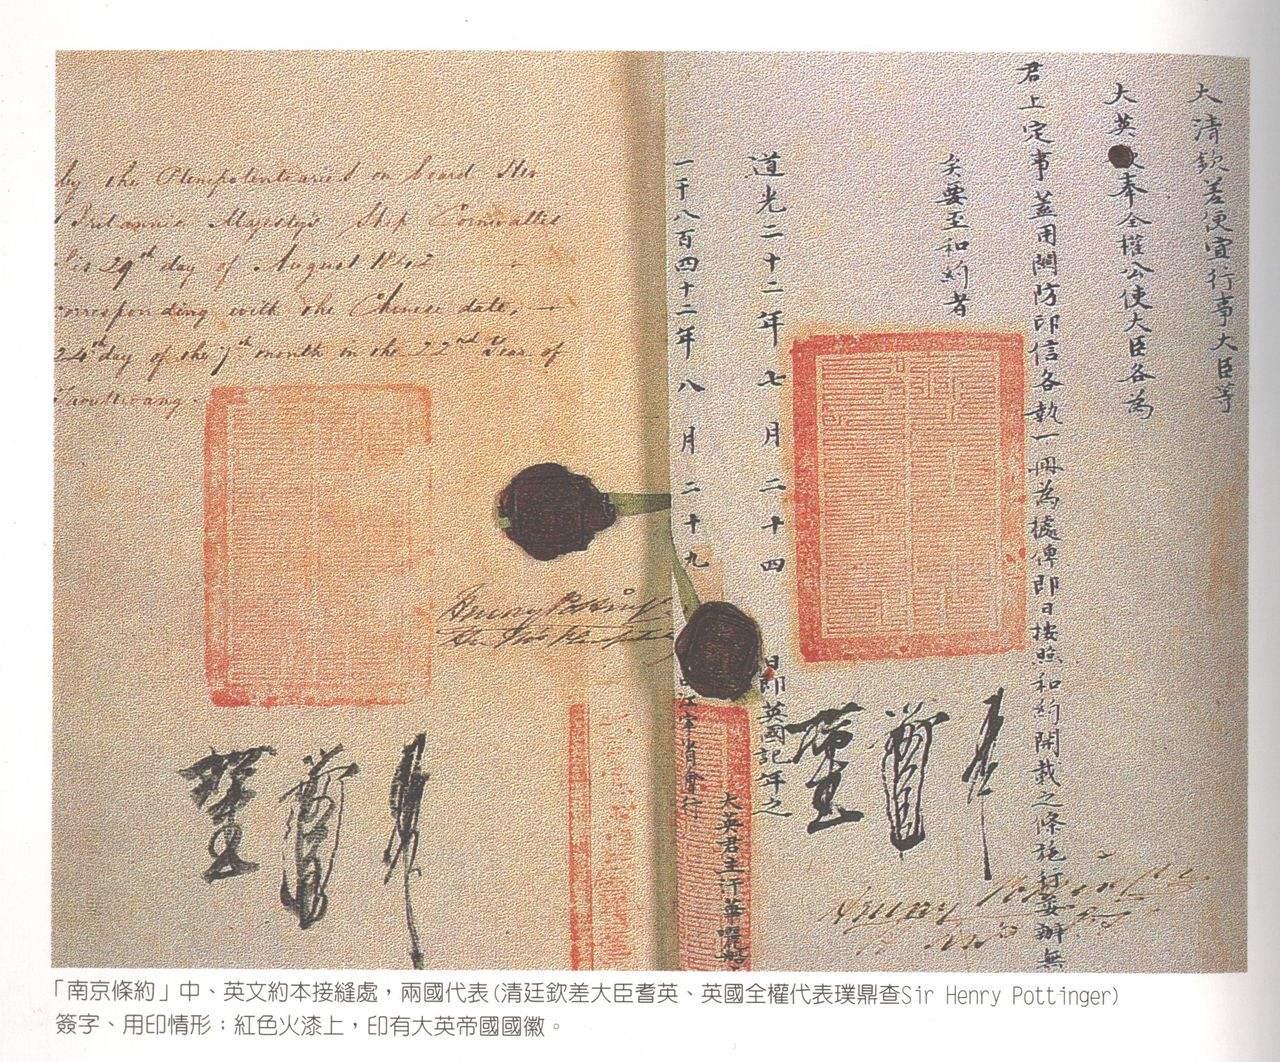 by the Plenipotentiaries on board Her
Britannic Majesty's Ship Cornwallis
this 29th day of August 1842
corresponding with the Chinese date,
24th day of the 7th month in the 22nd Year of
Taoukwang
大清欽差便宜行事大臣等
大英欽奉全權公使大臣各為
君上定事蓋用關防印信各執一冊為據俾即日按照和約開載之條施行妥辦無
矣要至和約者
道光二十二年七月二十四日即英國記年之
一千八百四十二年八月二十九
江寧省會行
大英君主汗華囇船
Henry Pottinger
「南京條約」中、英文約本接縫處，兩國代表(清廷欽差大臣耆英、英國全權代表璞鼎查Sir Henry Pottinger)
簽字、用印情形：紅色火漆上，印有大英帝國國徽。